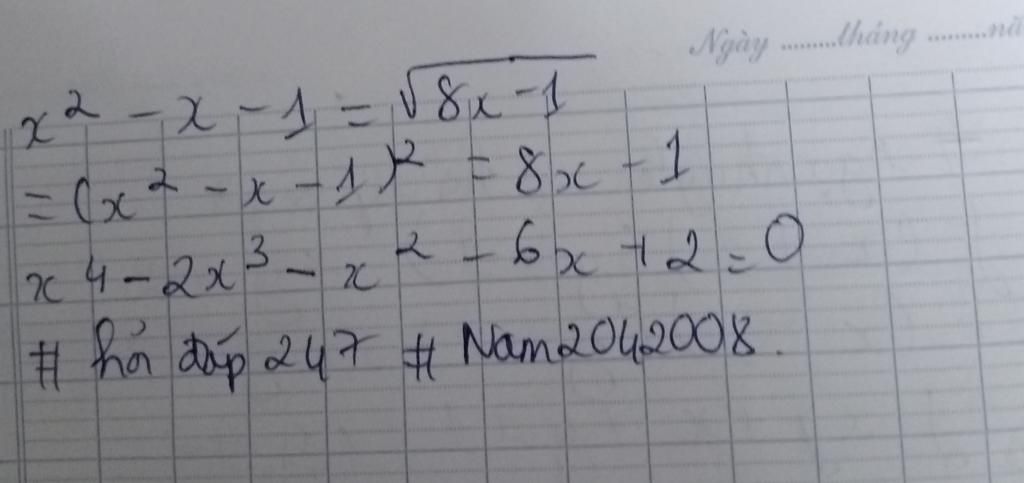 Ngày .........tháng .........nă
x² - x - 1 = √8x - 1
= (x² - x - 1)² = 8x - 1
x⁴ - 2x³ - x² - 6x + 2 = 0
# hỏi đáp 247 # Nam2042008.